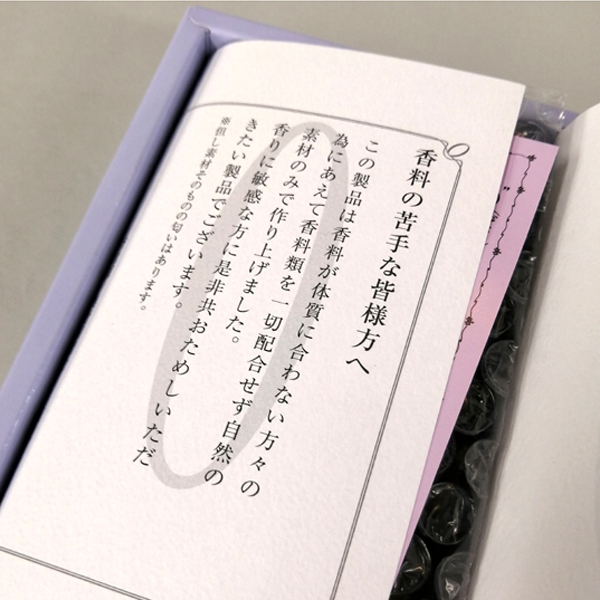 香料の苦手な皆様方へ
この製品は香料が体質に合わない方々の
為にあえて香料類を一切配合せず自然の
素材のみで作り上げました。
香りに敏感な方に是非共おためしいただ
きたい製品でございます。
※但し素材そのものの匂いはあります。